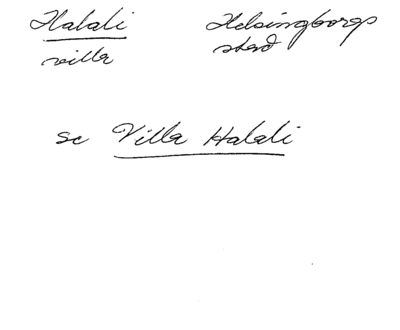 Halali Helsingborgs
villa stad
se Villa Halali